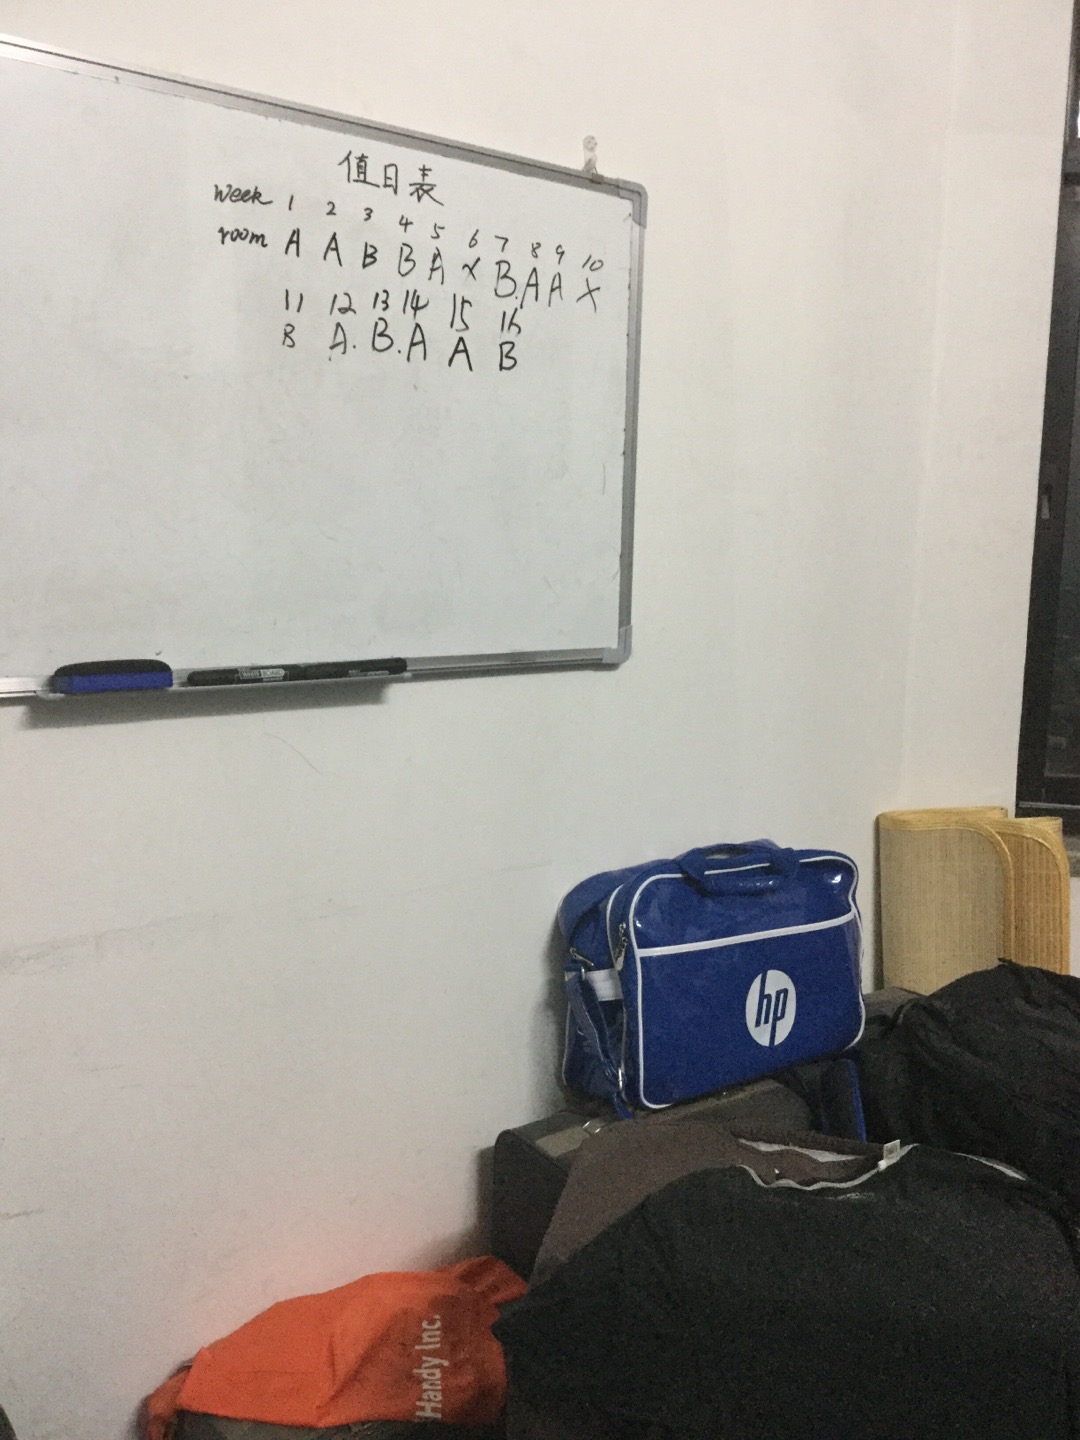 值日表
week 1 2 3 4 5 6 7 8 9 10
room A A B B A X B. A A X
11 12 13 14 15 16
B A. B. A A B
hp
Handy Inc.